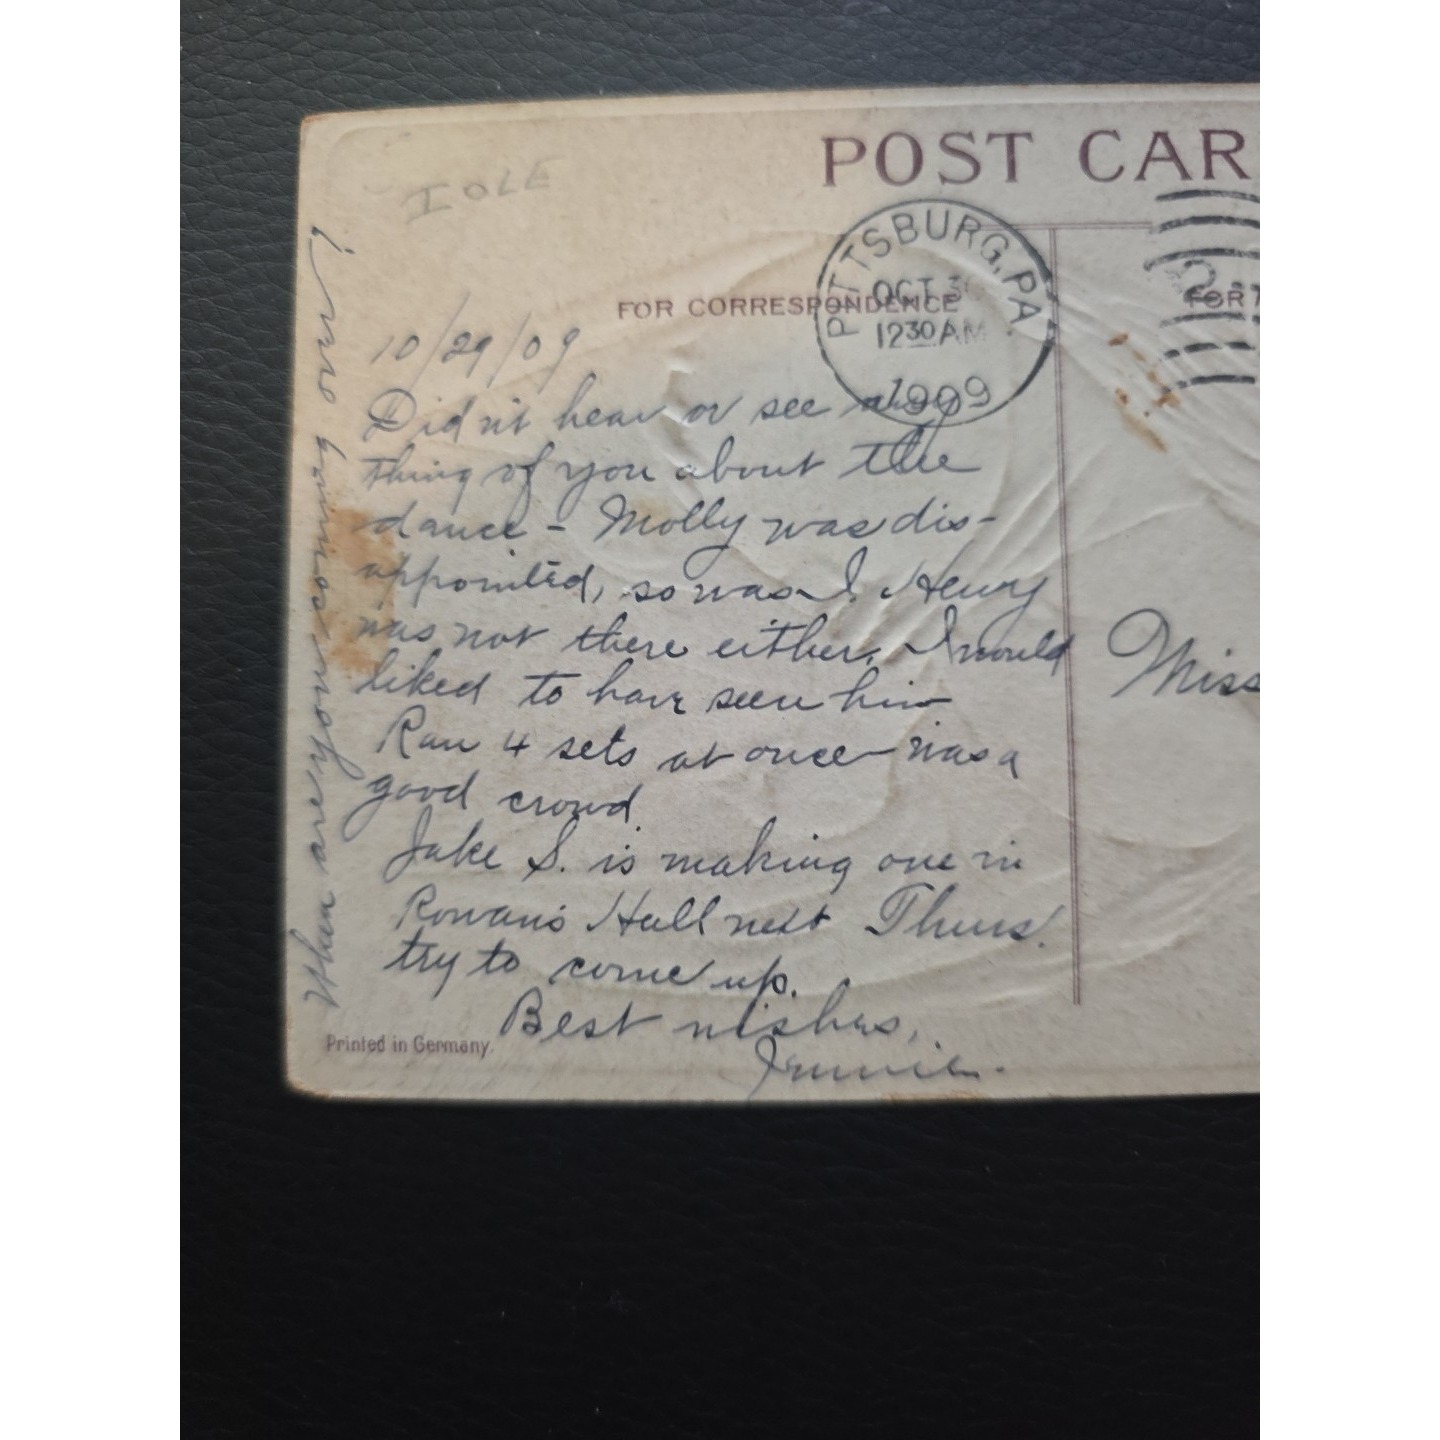 IOLE
POST CAR
PITTSBURG, PA.
OCT 30
1230 AM
1909
FOR CORRESPONDENCE
FOR
10/29/09
Didn't hear or see any
thing of you about the
dance - Molly was dis-
appointed, so was I. Henry
was not there either. I would
liked to have seen him
Ran 4 sets at once was a
good crowd
Jake S. is making one in
Rowan's Hall next Thurs.
try to come up.
Best wishes,
Jennie.
When are you coming over
Miss
Printed in Germany.